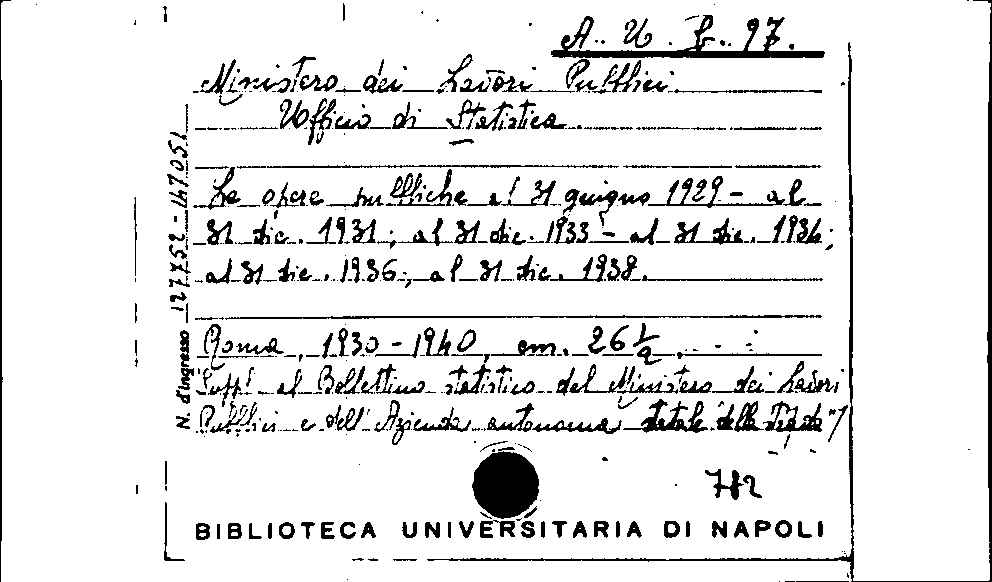 A. U. B. 97.
Ministero dei Lavori Pubblici.
Ufficio di Statistica.
Le opere pubbliche al 31 giugno 1929 - al
31 dic. 1931; al 31 dic. 1933 - al 31 dic. 1934;
al 31 dic. 1936; al 31 dic. 1938.
Roma, 1930 - 1940, cm. 26 1/2.
Suppl. al Bollettino statistico del Ministero dei Lavori
Pubblici e dell'Azienda autonoma statale della strada"/
N. d'ingresso 127752-147051
782
BIBLIOTECA UNIVERSITARIA DI NAPOLI